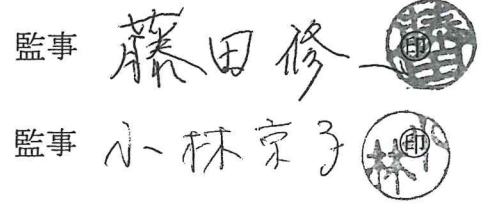 監事 藤田修一 ㊞
監事 小林京子 ㊞